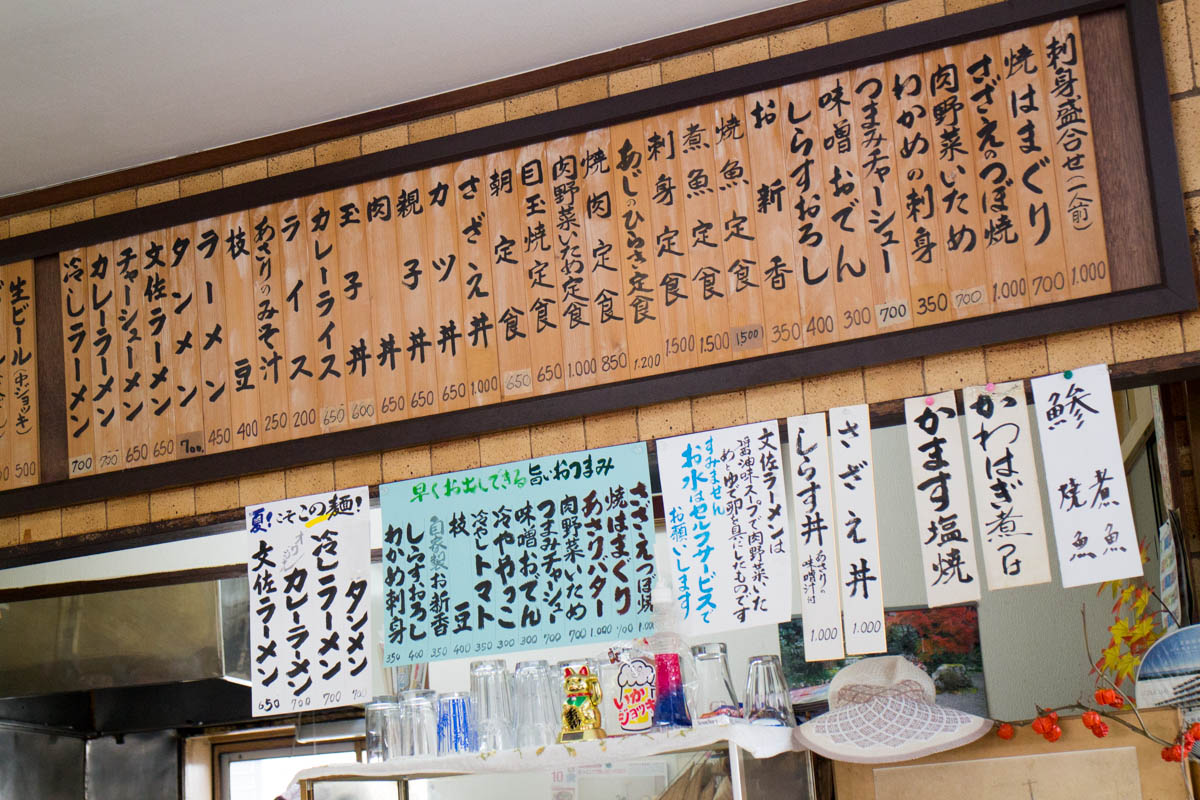 刺身盛合せ(二人前) 1.000
焼はまぐり 700
さざえのつぼ焼 1.000
肉野菜いため 700
わかめの刺身 350
つまみチャーシュー 700
味噌おでん 300
しらすおろし 400
お新香 350
焼魚定食 1500
煮魚定食 1.500
刺身定食 1.500
あじのひらき定食 1.200
焼肉定食 850
肉野菜いため定食 1.000
目玉焼定食 650
朝定食 650
さざえ丼 1.000
カツ丼 650
親子丼 650
肉丼 650
玉子丼 600
カレーライス 650
ライス 200
あさりのみそ汁 250
枝豆 400
ラーメン 450
タンメン 700
文佐ラーメン 650
チャーシューメン 650
カレーラーメン 700
冷しラーメン 700
生ビール(中ジョッキ) 500
鯵 煮魚 焼魚
かわはぎ煮つけ
かます塩焼
さざえ丼 1.000
しらす丼 あさりの味噌汁付 1.000
文佐ラーメンは
醤油味スープで肉野菜いため
めとゆで卵を具にしたものです
すみません
お水はセルフサービスで
お願いします
早くお出しできる旨いおつまみ
さざえつぼ焼 1.000
焼はまぐり 700
あさりバター 1.000
肉野菜いため 700
つまみチャーシュー 700
味噌おでん 300
冷ややっこ 300
冷しトマト 350
枝豆 400
自家製お新香 350
しらすおろし 400
わかめ刺身 350
夏!こそこの麺!
タンメン 700
冷しラーメン 700
カレーラーメン 700
文佐ラーメン 650
いかジョッキ
10